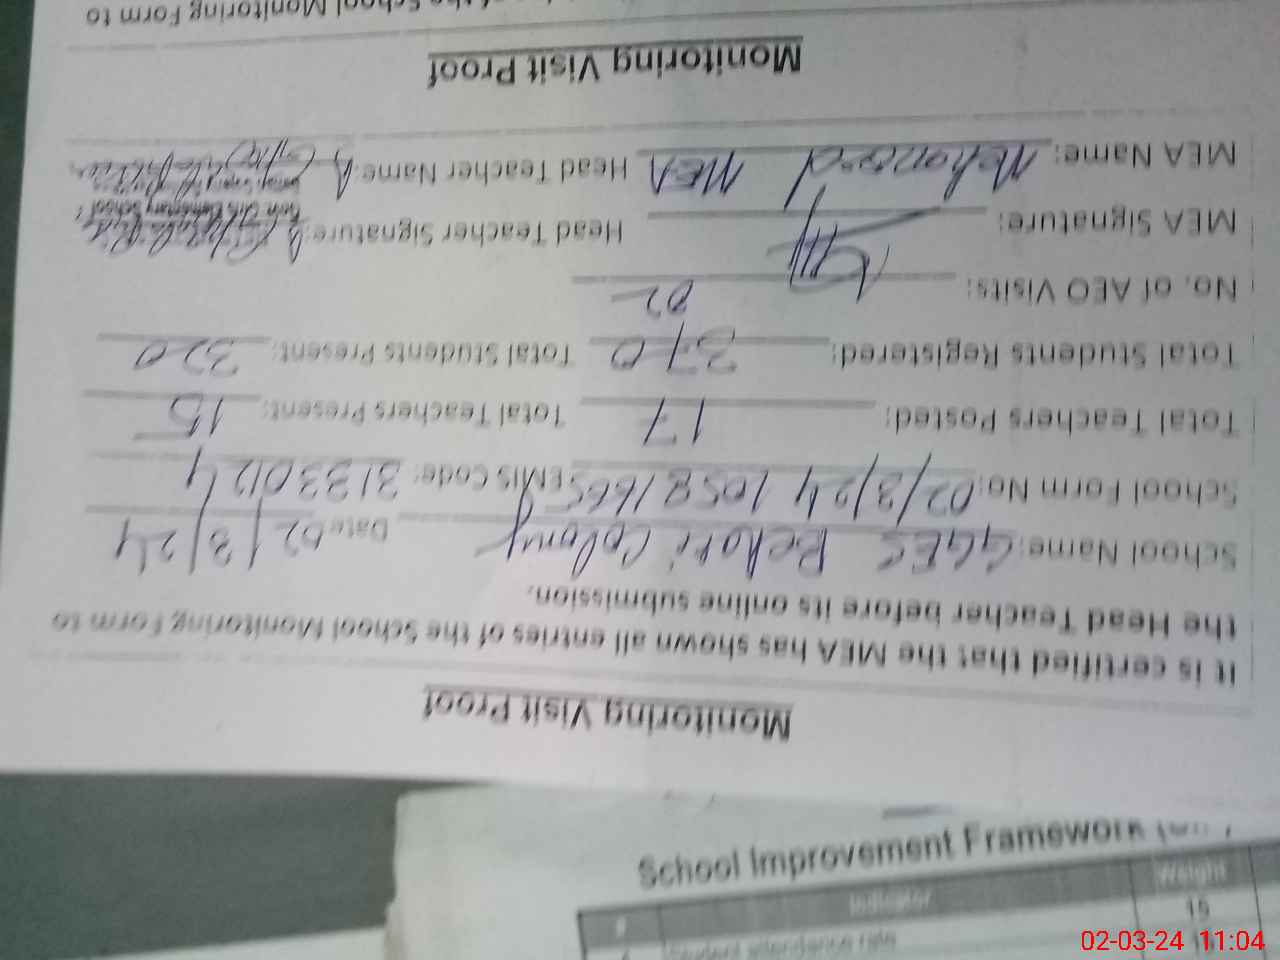 Monitoring Visit Proof
It is certified that the MEA has shown all entries of the School Monitoring Form to
the Head Teacher before its online submission.
School Name: GGES Behari Colony Date: 02/3/24
School Form No: 02/3/24 10581665 EMIS Code: 31330124
Total Teachers Posted: 17 Total Teachers Present: 15
Total Students Registered: 370 Total Students Present: 320
No. of AEO Visits: 02
MEA Signature: Head Teacher Signature:
MEA Name: MEA Head Teacher Name:
Monitoring Visit Proof
School Monitoring Form to
School Improvement Framework
# Indicator Weight
Student attendance rate 15
02-03-24 11:04